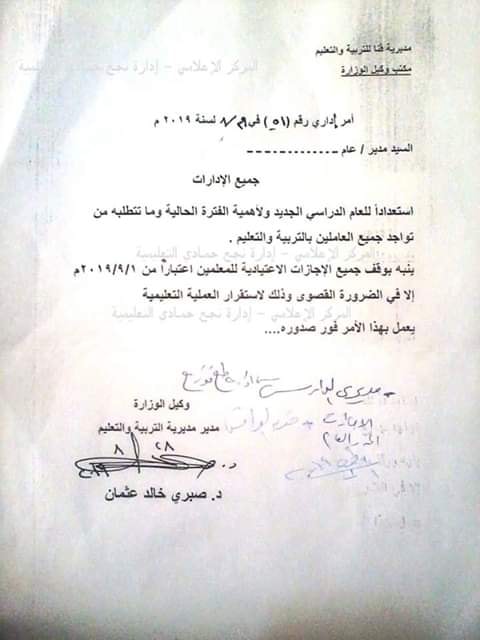 مديرية قنا للتربية والتعليم
مكتب وكيل الوزارة
المركز الإعلامي – إدارة نجع حمادي التعليمية
أمر إداري رقم (٥١) في ٨/٢٩ لسنة ٢٠١٩ م
السيد مدير / عام -------------
جميع الإدارات
استعداداً للعام الدراسي الجديد ولأهمية الفترة الحالية وما تتطلبه من
تواجد جميع العاملين بالتربية والتعليم .
المركز الإعلامي – إدارة نجع حمادي التعليمية
ينبه بوقف جميع الإجازات الاعتيادية للمعلمين اعتباراً من ٢٠١٩/٩/١م
إلا في الضرورة القصوى وذلك لاستقرار العملية التعليمية
المركز الإعلامي – إدارة نجع حمادي التعليمية
يعمل بهذا الأمر فور صدوره....
وكيل الوزارة
مدير مديرية التربية والتعليم
٢٨ / ٨
د. صبري خالد عثمان